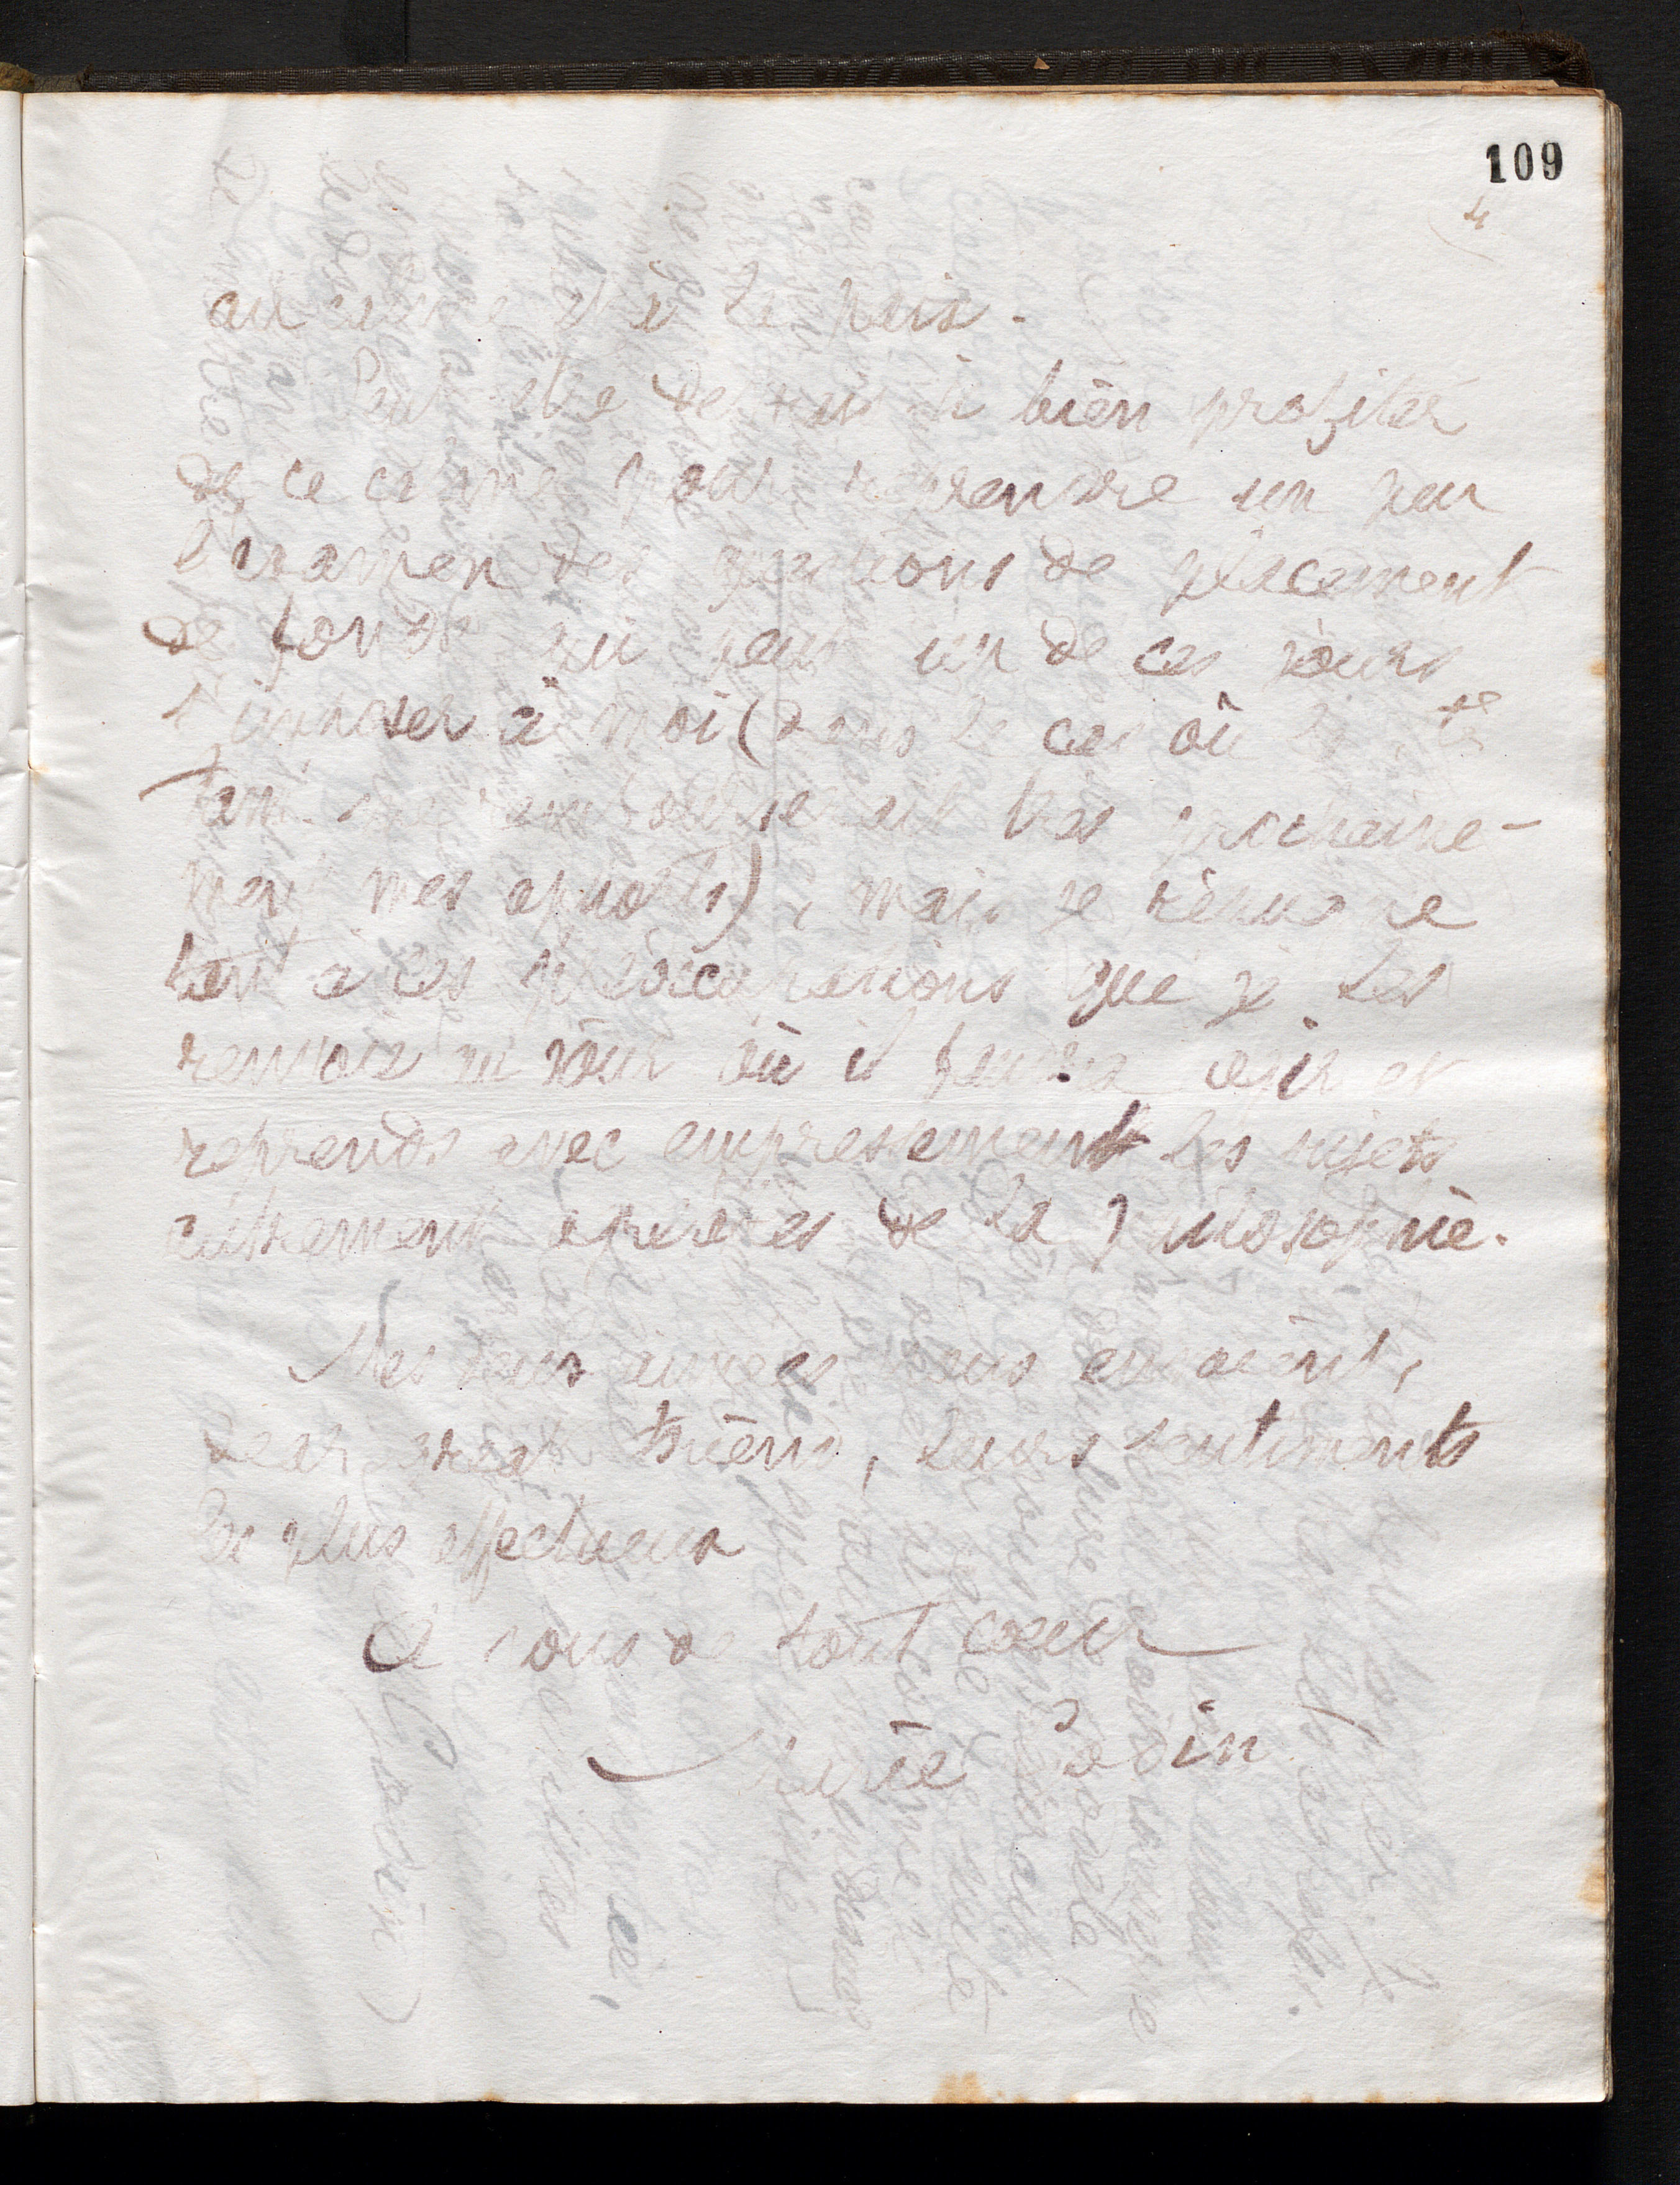 109
4
au calme et à la paix.
Peut-être devrais-je bien profiter
de ce calme pour reprendre un peu
l'examen des questions de placement
de fonds qui peut un de ces jours
s'imposer à moi (dans le cas où la Sté
Fam. me rembourserait très prochaine-
ment mes apports), mais je répugne
tant à ces préoccupations que je les
renvoie au jour où il faudra agir et
reprends avec empressement les sujets
autrement aimés de la philosophie.
Mes deux aimées vous envoient,
dear great friend, leurs sentiments
les plus affectueux
A vous de tout coeur
Marie Godin